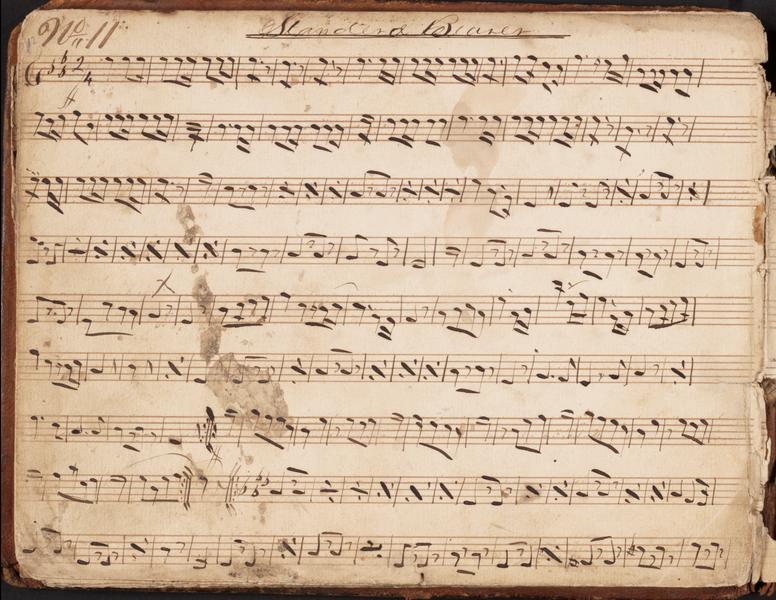 No 11
Standard Bearer
2
4
ff